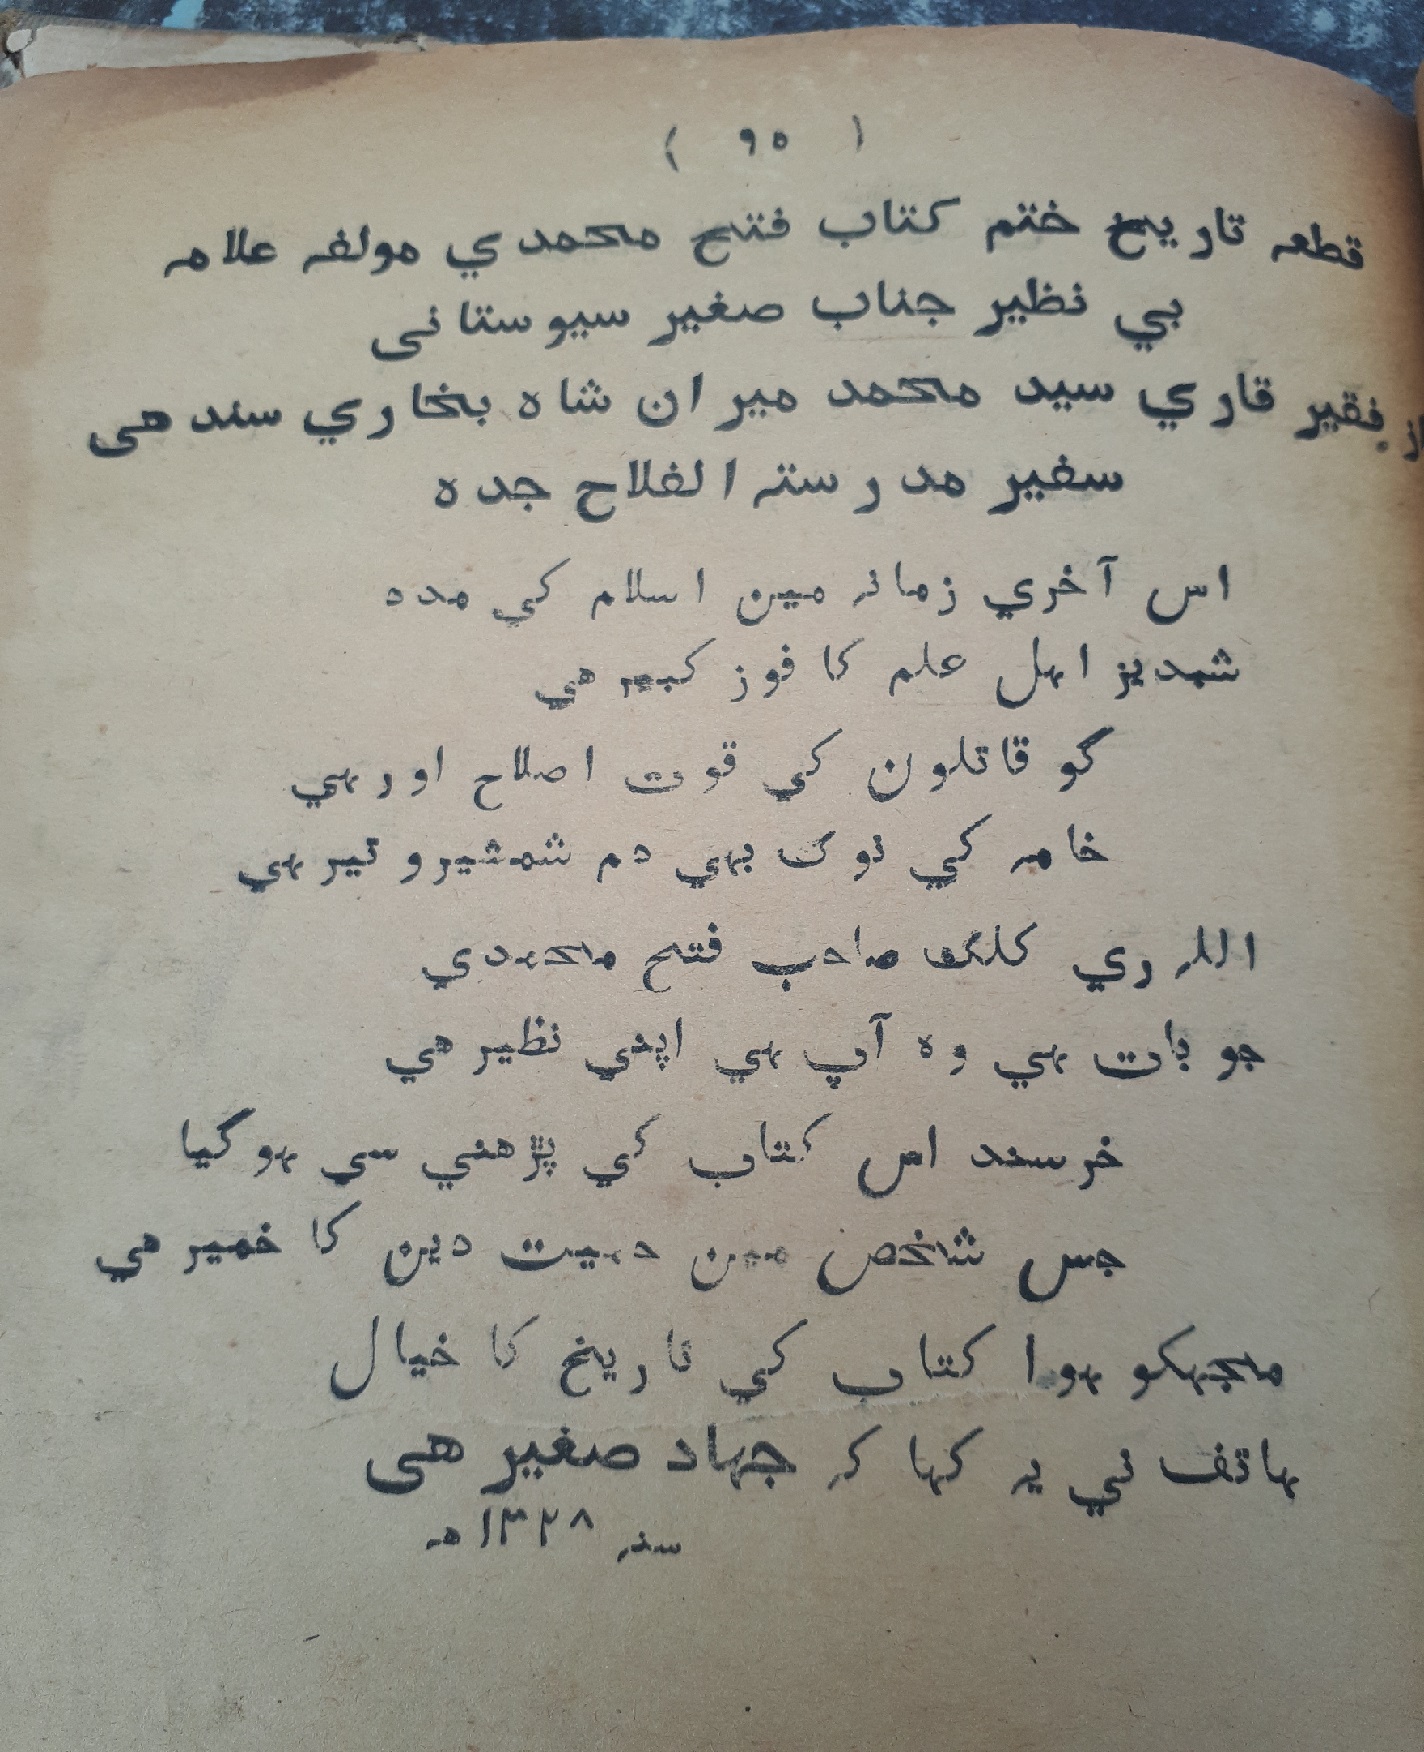 ( ۹۵ )
قطعہ تاریخ ختم کتاب فتح محمدي مولفہ علامہ
بي نظیر جناب صغیر سیوستانی
از فقیر قاري سید محمد میران شاہ بخاري سندھی
سفیر مدرستہ الفلاح جدہ
اس آخري زمانہ مین اسلام کي مدد
شبدیز اہل علم کا فوز کبیر ھي
گو قاتلون کي قوت اصلاح اور ہي
خامہ کي نوک بھي دم شمشیر و تیر ہي
اللہ ري کلک صاحب فتح محمدي
جو بات ہي وہ آپ ہي اپني نظیر ھي
خرسند اس کتاب کي پڑھني سي ہوگیا
جس شخص مین حمیت دین کا خمیر ھي
مجہکو ہوا کتاب کي تاریخ کا خیال
ہاتف ني یہ کہا کہ جہاد صغیر ھی
سنہ ۱۳۲۸ ھ